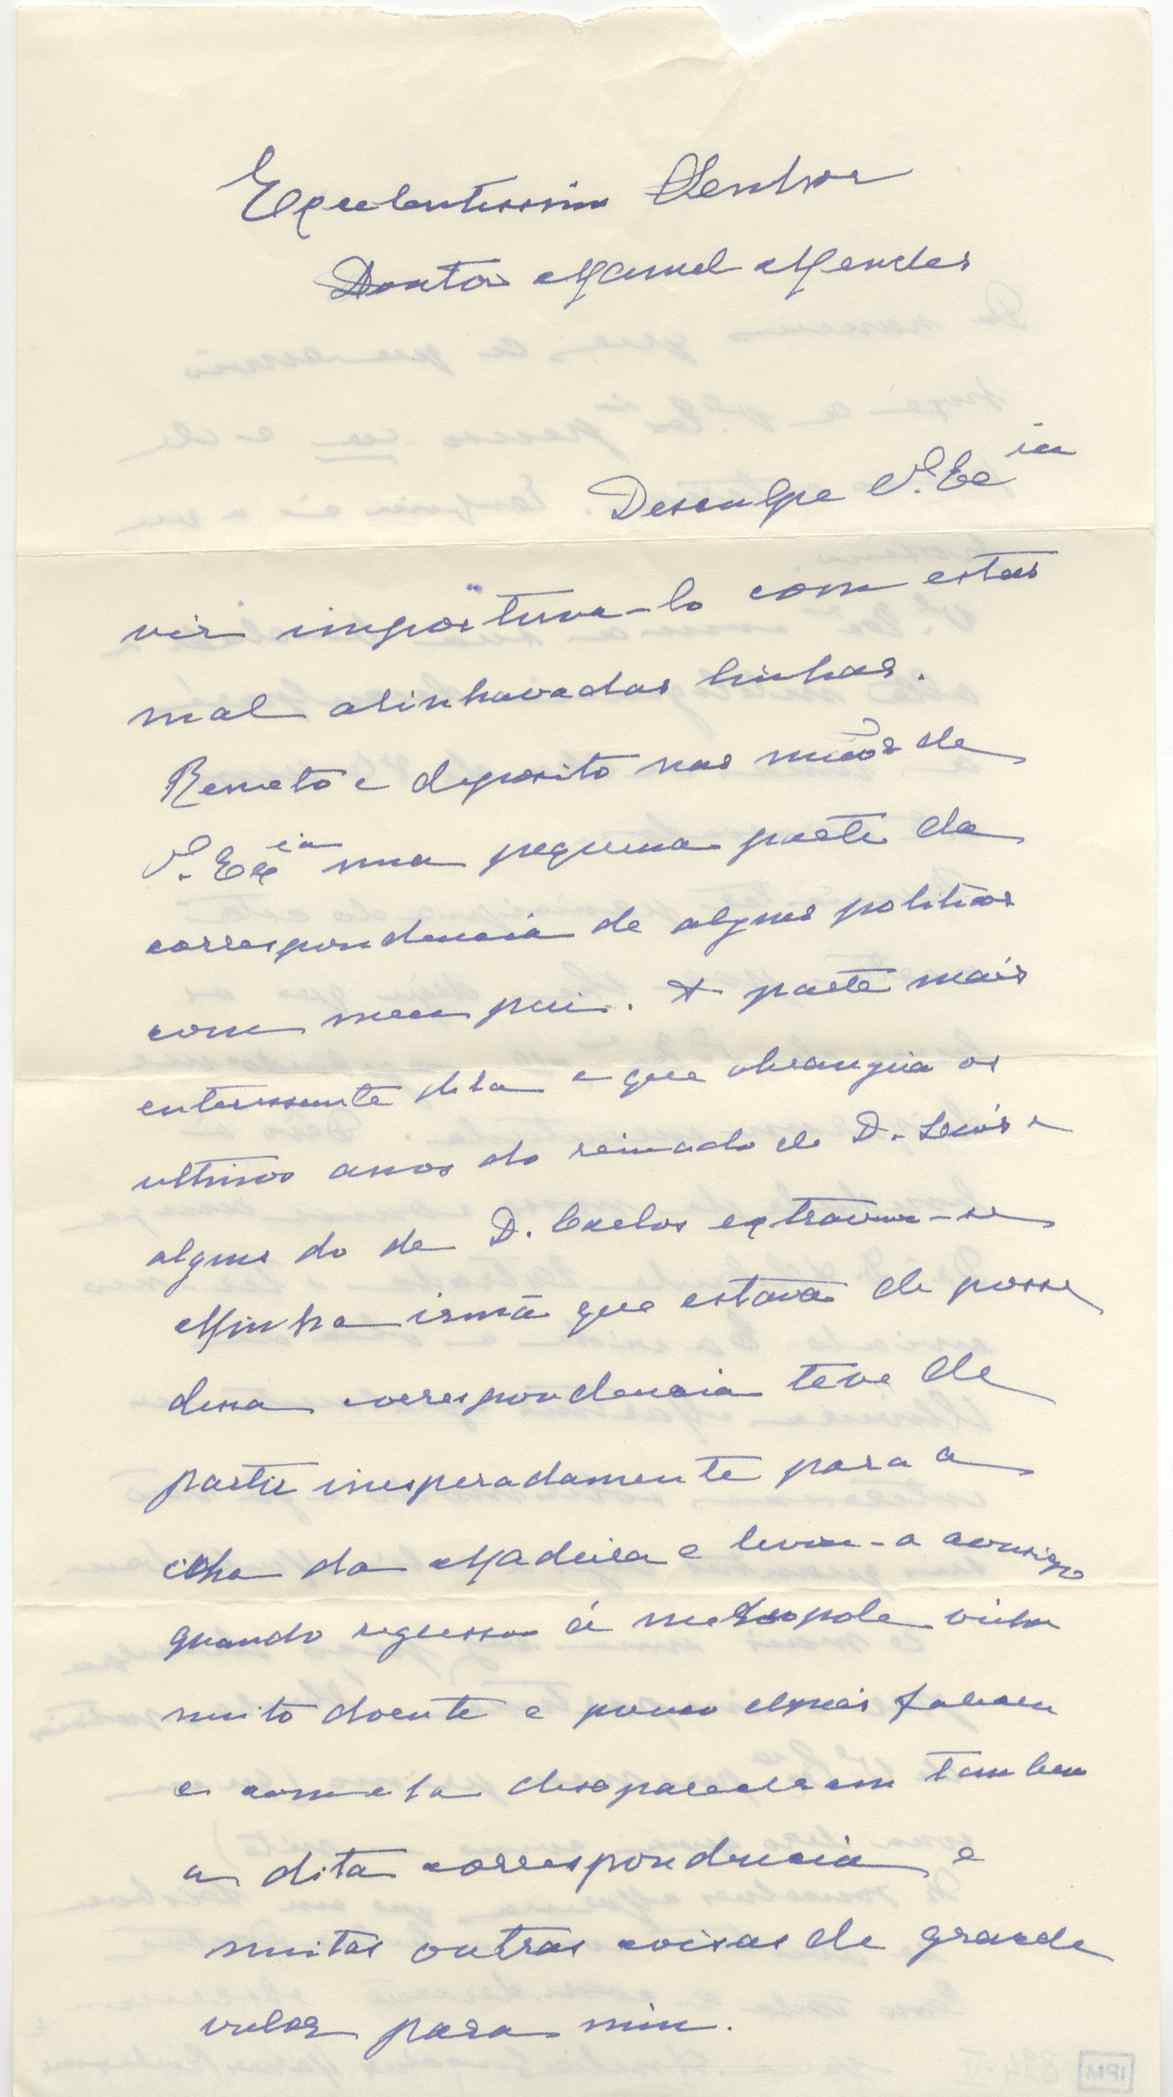 Excelentissimo Senhor
Doutor Manuel Mendes
Desculpe V. Ex cia
vir importuna-lo com estas
mal alinhavadas linhas.
Remeto e deposito nas mãos de
V. Ex cia uma pequena parte da
correspondencia de alguns politicos
com meu pai. A parte mais
enteressante dela e que abrangia os
ultimos anos do reinado de D. Luís e
alguns do de D. Carlos extraviou-se
Minha irmã que estava de posse
dessa correspondencia teve de
partir inesperadamente para a
ilha da Madeira e levou-a consigo
quando regressou á metropole vinha
muito doente e pouco depois faleceu
e com ela desapareceram tambem
a dita correspondencia e
muitas outras coisas de grande
valor para mim.